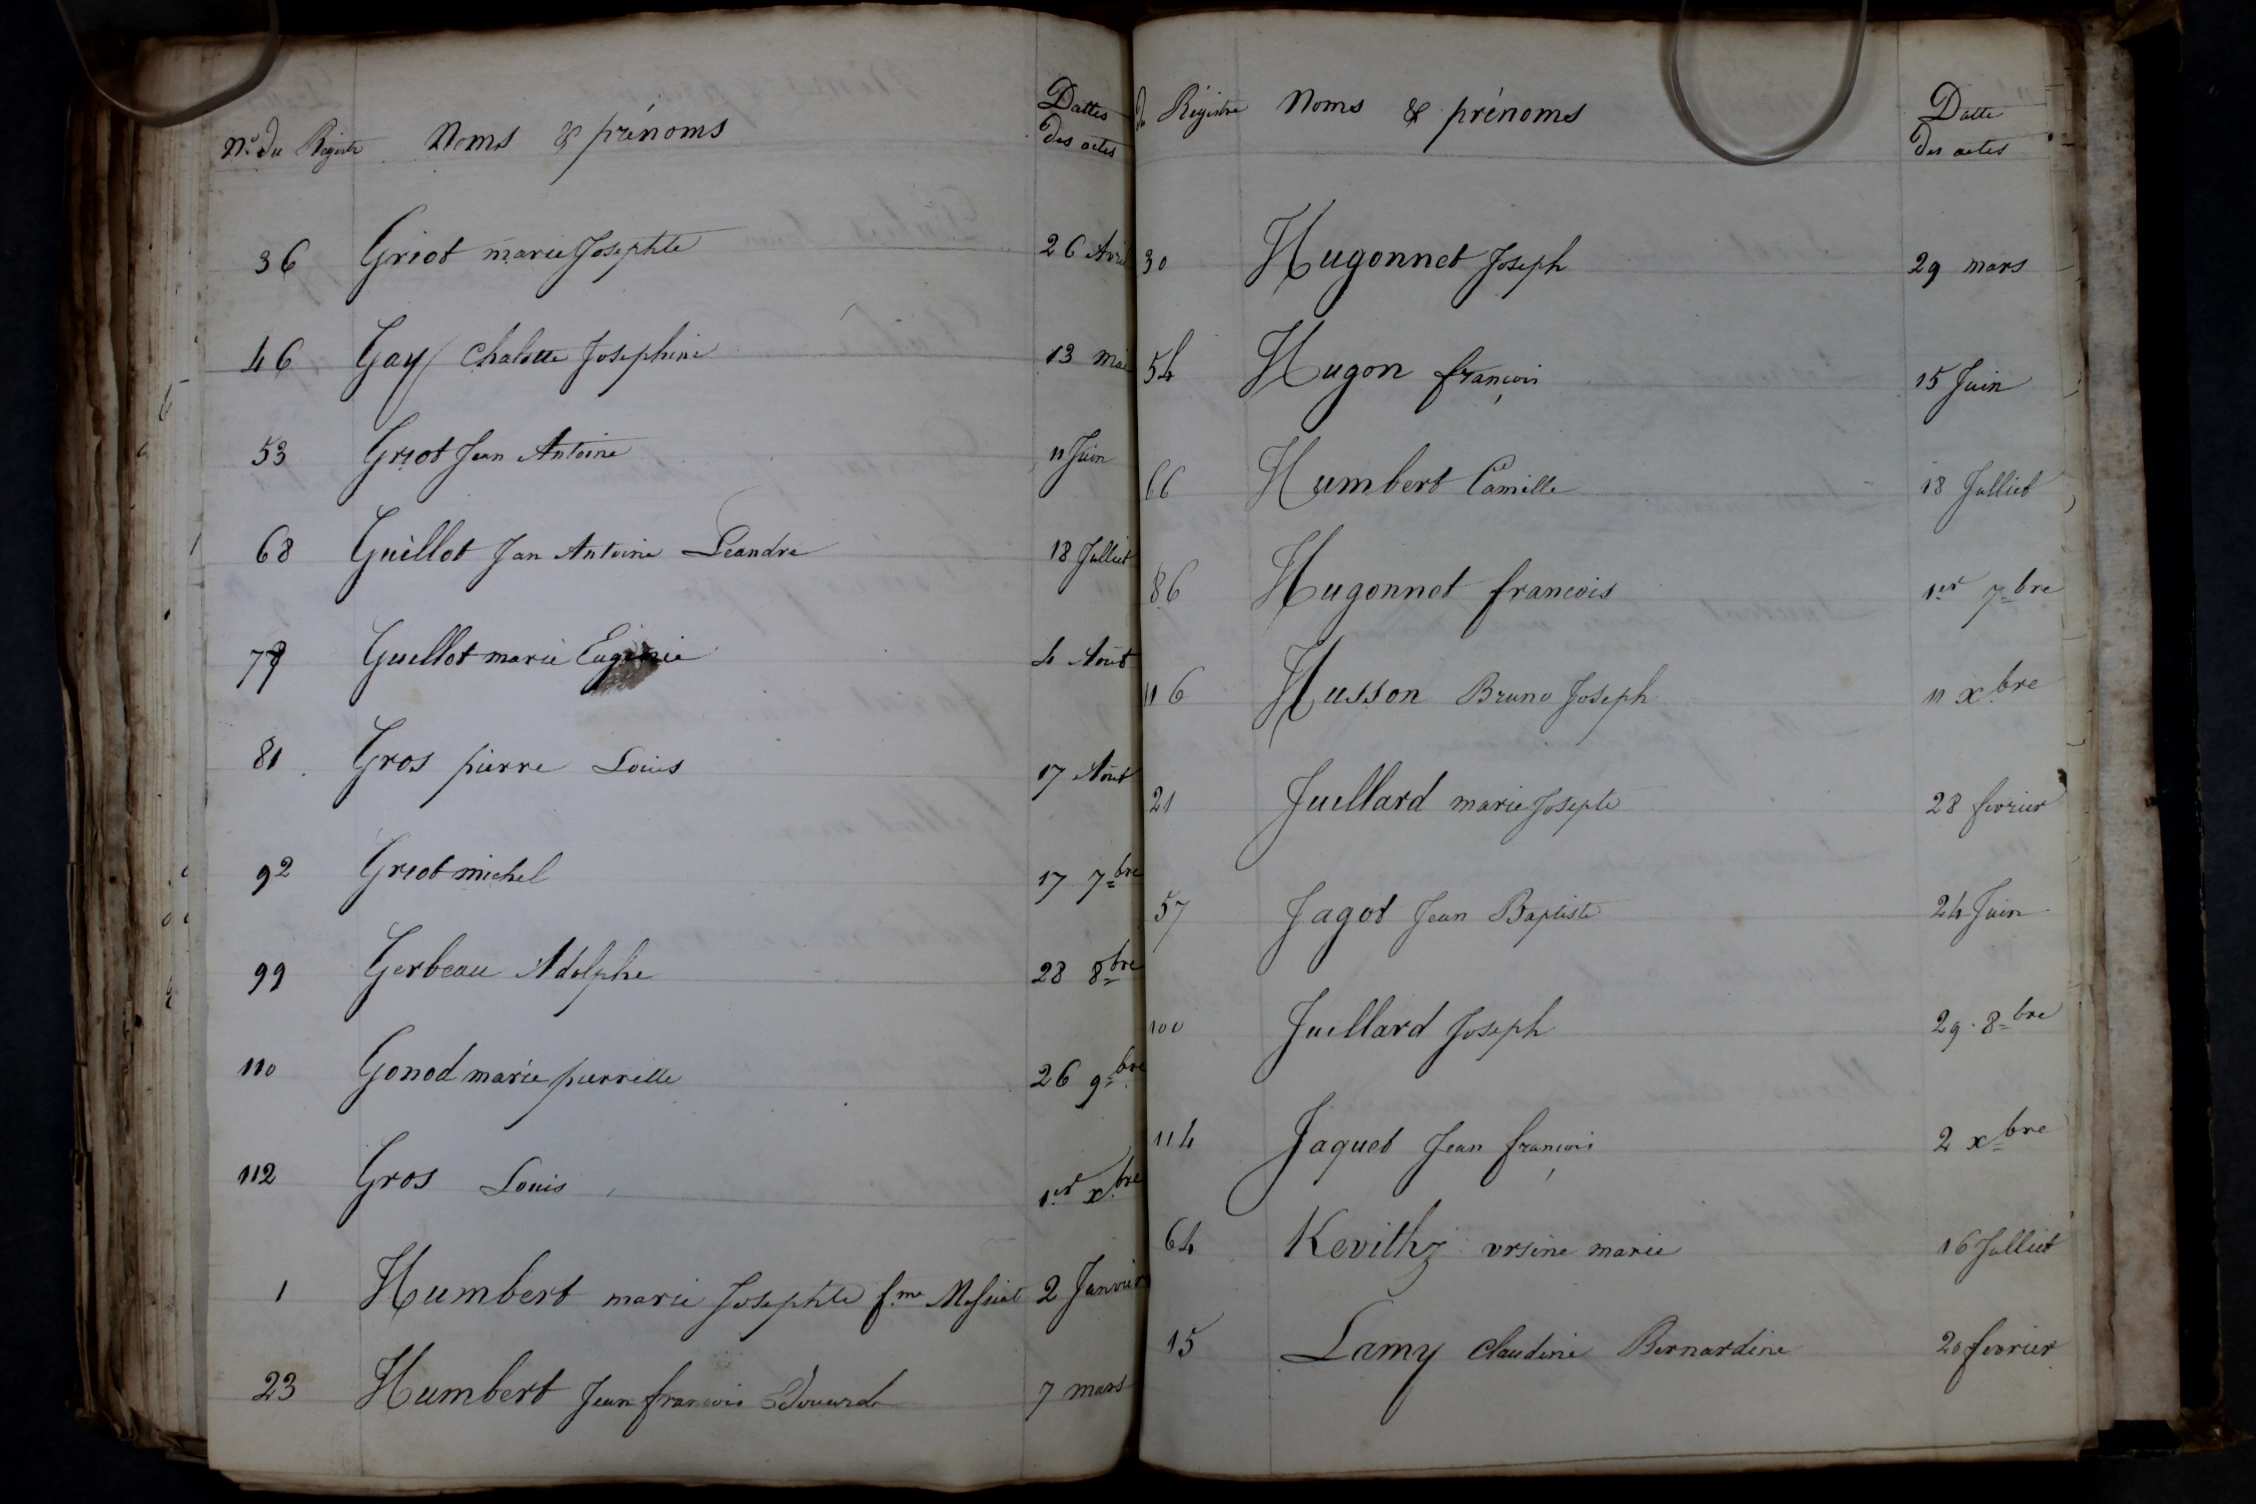 N.º du Registre Noms & prénoms Dattes des actes
36 Griot marie Josephte 26 Avril
46 Gay Josephine 13 mai
53 Griot Jean Antoine 11 Juin
68 Guillot Jan Antoine Leandre 18 Julliet
Guillot marie Eugenie 4 Août
81 Gros pierre Louis 17 Août
92 Griot michel 17 7bre
99 Gerbeau Adolphe 28 8bre
110 Gonod marie pierrette 26 9bre
112 Gros Louis 1er xbre
1 Humbert marie Josephte fme 2 Janvier
23 Humbert Jean francois Edouard 7 mars
Régistre Noms & prénoms Datte des actes
30 Hugonnet Joseph 29 mars
54 Hugon françois 15 Juin
66 Humbert Camille 18 Julliet
86 Hugonnet francois 1er 7bre
116 Husson Bruno Joseph 11 xbre
21 Juillard marie Josepte 28 fevrier
57 Jagot Jean Baptiste 24 Juin
100 Juillard Joseph 29 8bre
114 Jaquet Jean françois 2 xbre
64 ursine marie 16 Julliet
15 Lamy Claudine Bernardine 20 fevrier